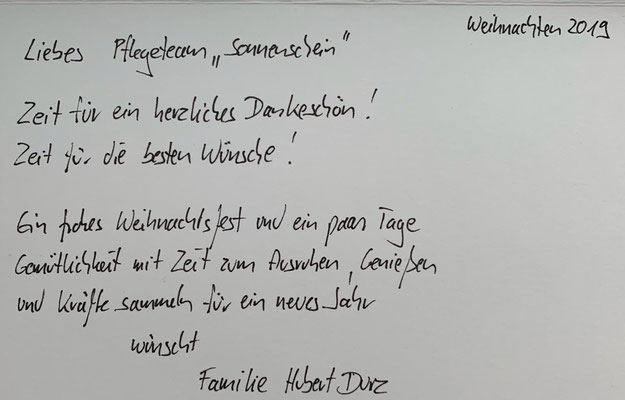 Weihnachten 2019
Liebes Pflegeteam „Sonnenschein"
Zeit für ein herzliches Dankeschön!
Zeit für die besten Wünsche!
Ein frohes Weihnachtsfest und ein paar Tage
Gemütlichkeit mit Zeit zum Ausruhen, Genießen
und Kräfte sammeln für ein neues Jahr
wünscht
Familie Hubert Durz